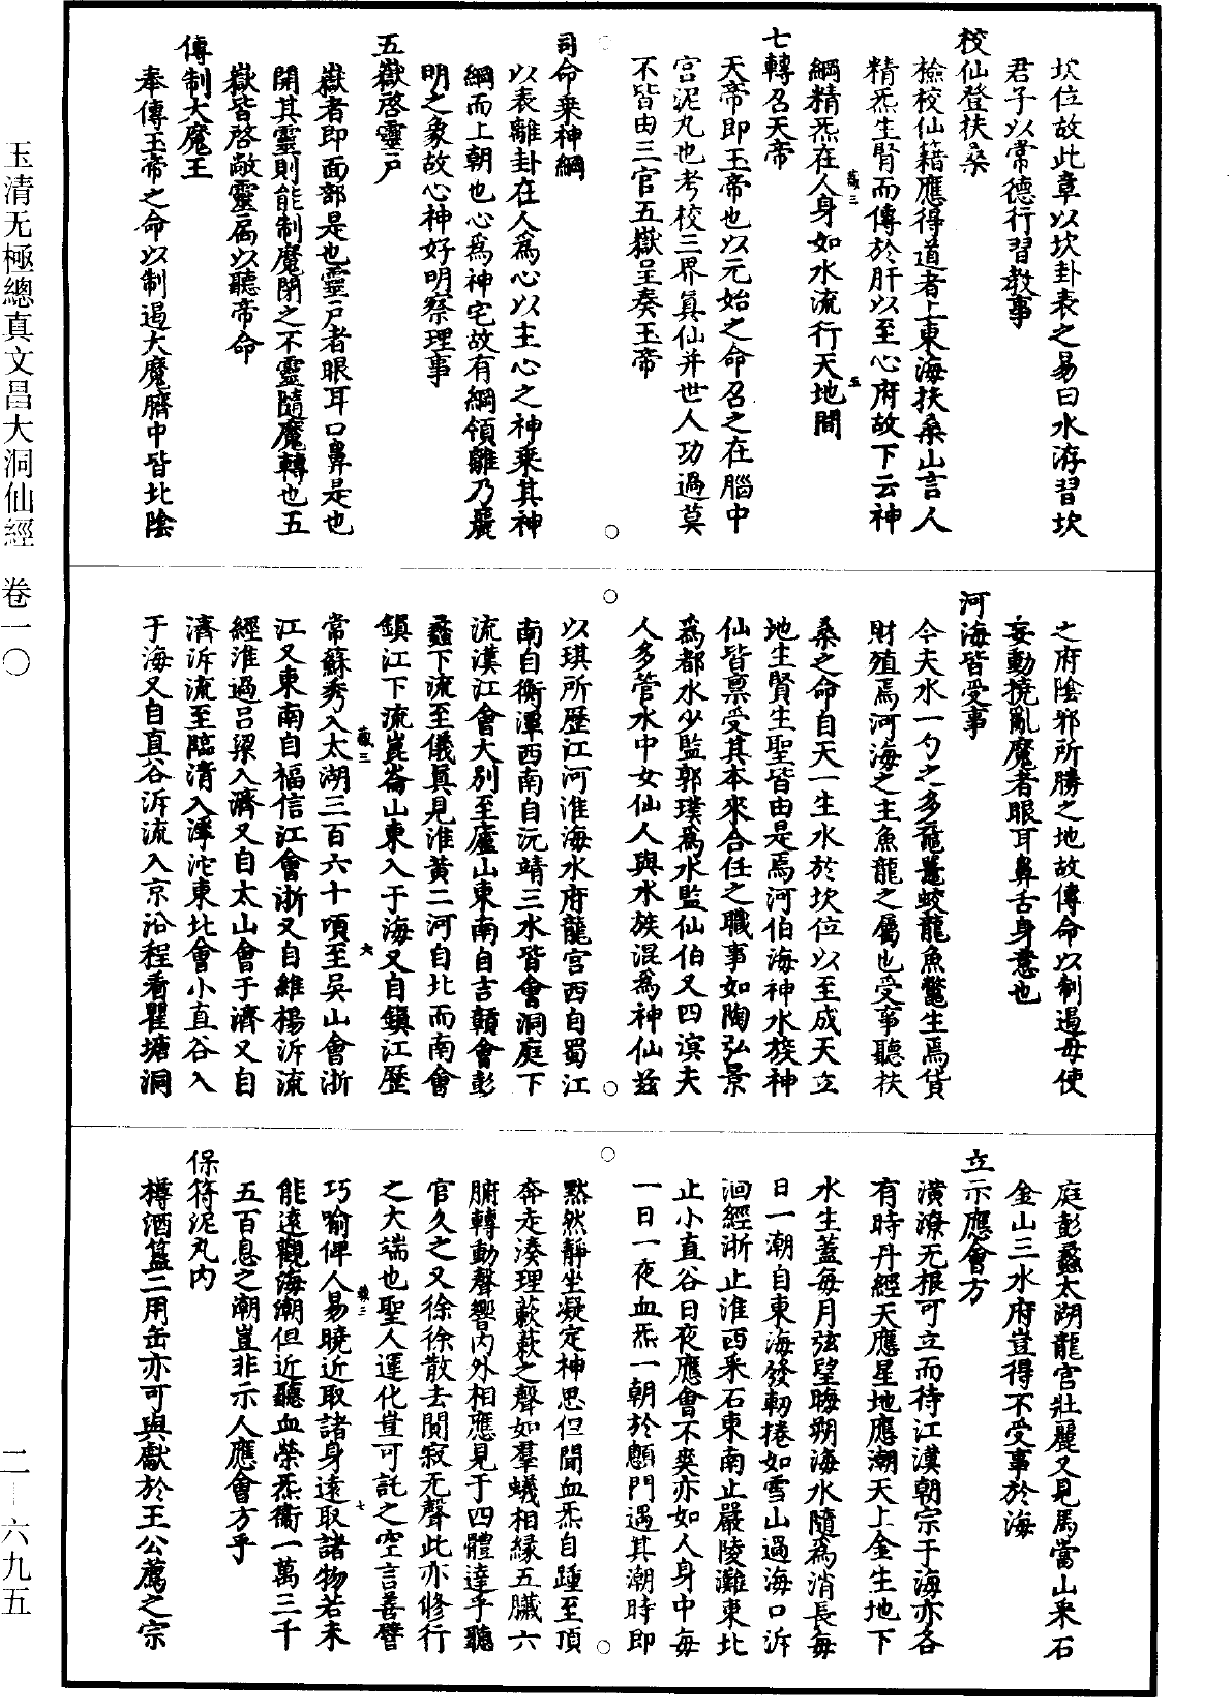 坎位故此章以坎卦表之易曰水洊習坎
君子以常德行習教事
校仙登扶桑
檢校仙籍應得道者上東海扶桑山言人
精炁生腎而傳於肝以至心府故下云神
綱精炁在人身如水流行天地間
七轉召天帝
天帝即玉帝也以元始之命召之在腦中
宮泥丸也考校三界真仙并世人功過莫
不皆由三官五嶽呈奏玉帝
司命乘神綱
以表離卦在人為心以主心之神乘其神
綱而上朝也心為神宅故有綱領離乃麗
明之象故心神好明察理事
五嶽啓靈戶
嶽者即面部是也靈戶者眼耳口鼻是也
開其靈則能制魔閉之不靈隨魔轉也五
嶽皆啓敞靈扃以聽帝命
傳制大魔王
奉傳玉帝之命以制遏大魔臍中皆北陰
之府陰邪所勝之地故傳命以制遏毋使
妄動撓亂魔者眼耳鼻舌身意也
河海皆受事
今夫水一勺之多黿鼉蛟龍魚鼈生焉貨
財殖焉河海之主魚龍之屬也受事聽扶
桑之命自天一生水於坎位以至成天立
地生賢生聖皆由是焉河伯海神水族神
仙皆稟受其本來合任之職事如陶弘景
為都水少監郭璞為水監仙伯又四溟夫
人多管水中女仙人與水族混為神仙兹
以琪所歷江河淮海水府龍宮西自蜀江
南自衡潭西南自沅靖三水皆會洞庭下
流漢江會大別至廬山東南自吉贛會彭
蠡下流至儀真見淮黃二河自北而南會
鎮江下流崑崙山東入于海又自鎮江歷
常蘇秀入太湖三百六十頃至吳山會浙
江又東南自福信江會浙又自維楊泝流
經淮過呂梁入濟又自太山會于濟又自
濟泝流至臨清入滹沱東北會小直谷入
于海又自直谷泝流入京沿程看瞿塘洞
庭彭蠡太湖龍宮壯麗又見馬當山采石
金山三水府豈得不受事於海
立示應會方
潢潦无根可立而待江漢朝宗于海亦各
有時丹經天應星地應潮天上金生地下
水生蓋每月弦望晦朔海水隨為消長每
日一潮自東海發軔捲如雪山過海口泝
洄經浙止淮西采石東南止嚴陵灘東北
止小直谷日夜應會不爽亦如人身中每
一日一夜血炁一朝於顖門遇其潮時即
默然靜坐凝定神思但聞血炁自踵至頂
奔走湊理蔌蔌之聲如羣蟻相緣五臟六
腑轉動聲響內外相應見于四體達乎聽
官久之又徐徐散去閴寂无聲此亦修行
之大端也聖人運化豈可託之空言善譬
巧喻俾人易曉近取諸身遠取諸物若未
能遠觀海潮但近聽血榮炁衛一萬三千
五百息之潮豈非示人應會方乎
保符泥丸內
樽酒簋二用缶亦可與獻於王公薦之宗
藏三
五
藏三
六
藏三
七
玉清无極總真文昌大洞仙經　卷一〇
二—六九五